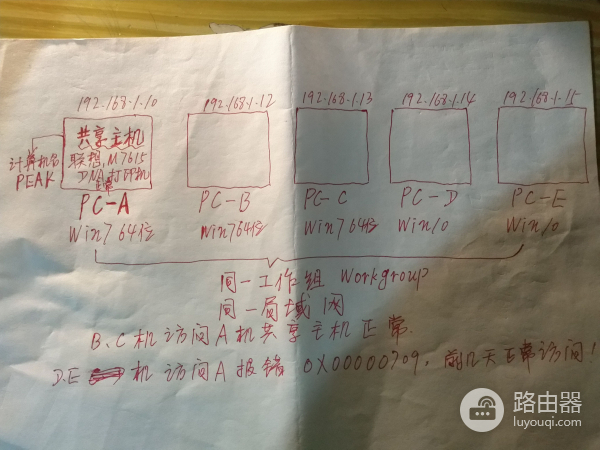 192.168.1.10
192.168.1.12
192.168.1.13
192.168.1.14
192.168.1.15
计算机名
PEAK
共享主机
联想M7615
DNA打印机
正常
PC-A
PC-B
PC-C
PC-D
PC-E
Win7 64位
Win7 64位
Win7 64位
Win10
Win10
同一工作组 Workgroup
同一局域网
B.C机访问A机共享主机正常.
D.E 机访问A报错 0X00000709, 前几天正常访问!
路由器
luyouqi.com